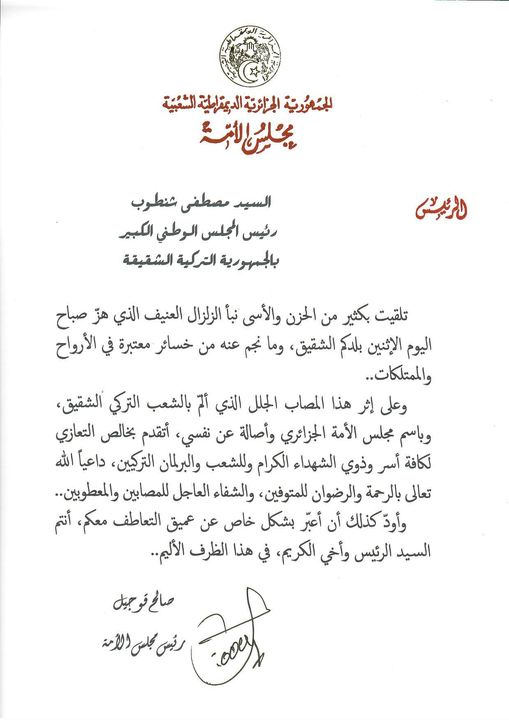 الجمهورية الجزائرية الديمقراطية الشعبية
مجلس الأمة
الرئيس
السيد مصطفى شنطوب
رئيس المجلس الوطني الكبير
بالجمهورية التركية الشقيقة
تلقيت بكثير من الحزن والأسى نبأ الزلزال العنيف الذي هزّ صباح
اليوم الإثنين بلدكم الشقيق، وما نجم عنه من خسائر معتبرة في الأرواح
والممتلكات..
وعلى إثر هذا المصاب الجلل الذي ألمّ بالشعب التركي الشقيق،
وباسم مجلس الأمة الجزائري وأصالة عن نفسي، أتقدم بخالص التعازي
لكافة أسر وذوي الشهداء الكرام وللشعب والبرلمان التركيين، داعياً الله
تعالى بالرحمة والرضوان للمتوفين، والشفاء العاجل للمصابين والمعطوبين..
وأودّ كذلك أن أعبّر بشكل خاص عن عميق التعاطف معكم، أنتم
السيد الرئيس وأخي الكريم، في هذا الظرف الأليم..
صالح قوجيل
رئيس مجلس الأمة